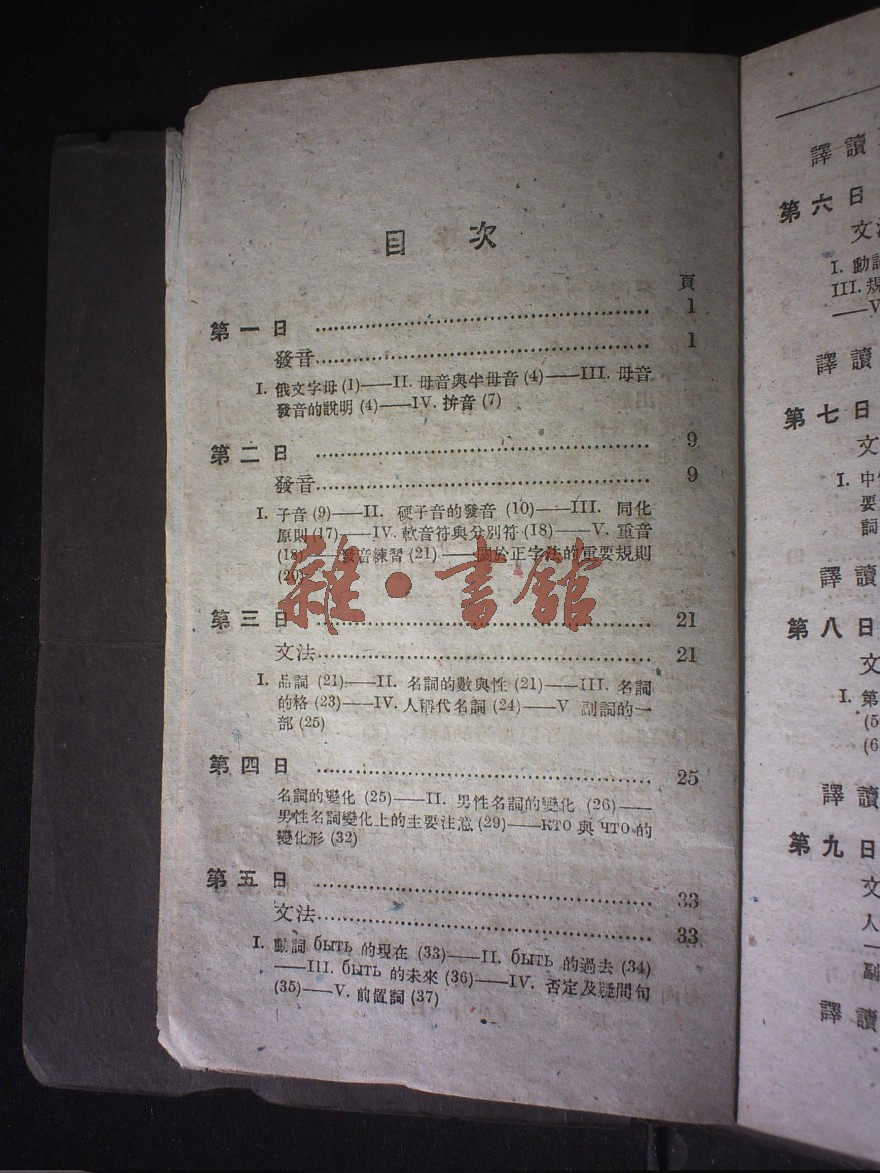 目 次
頁
第一日 …… 1
發音 …… 1
I. 俄文字母 (1)——II. 母音與半母音 (4)——III. 母音
發音的說明 (4)——IV. 拼音 (7)
第二日 …… 9
發音 …… 9
I. 子音 (9)——II. 硬子音的發音 (10)——III. 同化
原則 (17)——IV. 軟音符與分別符 (18)——V. 重音
(18)——發音練習 (21)——關於正字法的重要規則
(20)
雜·書館
第三日 …… 21
文法 …… 21
I. 品詞 (21)——II. 名詞的數與性 (21)——III. 名詞
的格 (23)——IV. 人稱代名詞 (24)——V 副詞的一
部 (25)
第四日 …… 25
名詞的變化 (25)——II. 男性名詞的變化 (26)——
男性名詞變化上的主要注意 (29)——КТО 與 ЧТО 的
變化形 (32)
第五日 …… 33
文法 …… 33
I. 動詞 быть 的現在 (33)——II. быть 的過去 (34)
——III. быть 的未來 (36)——IV. 否定及疑問句
(35)——V. 前置詞 (37)
譯讀
第六日
文
I. 動
III. 規
——V
譯讀
第七日
文
I. 中
要
詞
譯讀
第八日
文
I. 第
(5
(6
譯讀
第九日
文
人
—
副
譯讀